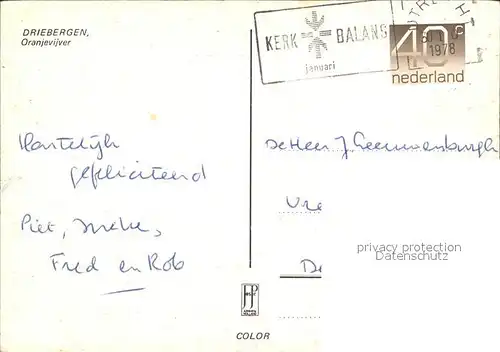 DRIEBERGEN,
Oranjevijver
UTRECHT
KERK BALANS
januari
1978
40c
nederland
Hartelijk
gefeliciteerd
Piet, Ineke,
Fred en Rob
De Heer J Leeuwenburgh
Vre
De
privacy protection
Datenschutz
COLOR